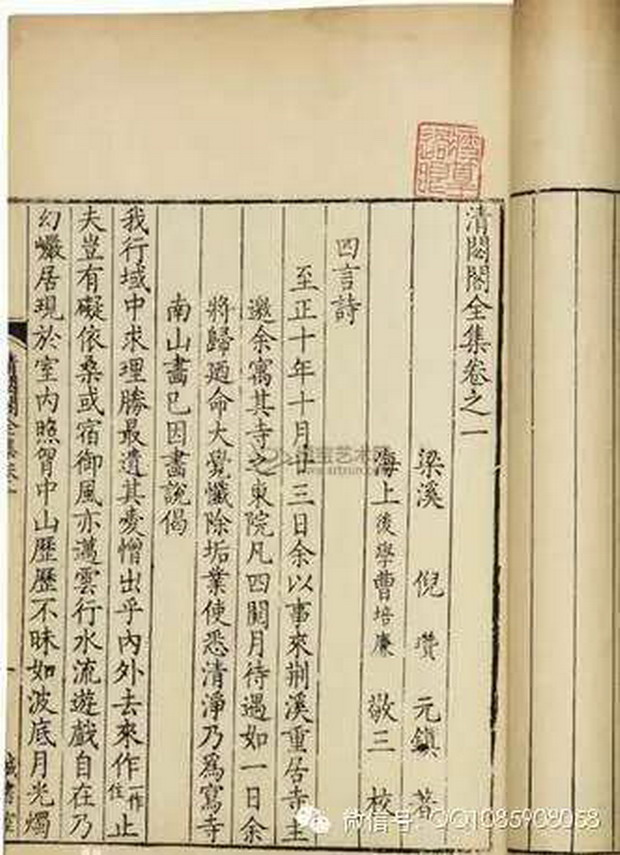 清閟閣全集卷之一
梁溪 倪瓚 元鎮 著
海上後學曹培廉 敬三 校
四言詩
至正十年十月廿三日余以事來荆溪重居寺主
邀余寓其寺之東院凡四閱月待遇如一日余
將歸廼命大覺懺除垢業使悉清淨乃爲寫寺
南山畫已因畫說偈
我行域中求理勝最遺其憂憎出乎內外去來作一作住止
夫豈有礙依桑或宿御風亦邁雲行水流遊戲自在乃
幻巖居現於室內照胷中山歷歷不昧如波底月光燭
清閟閣全集卷一
一
城書室
艺术网
微信号:QQ1085908058